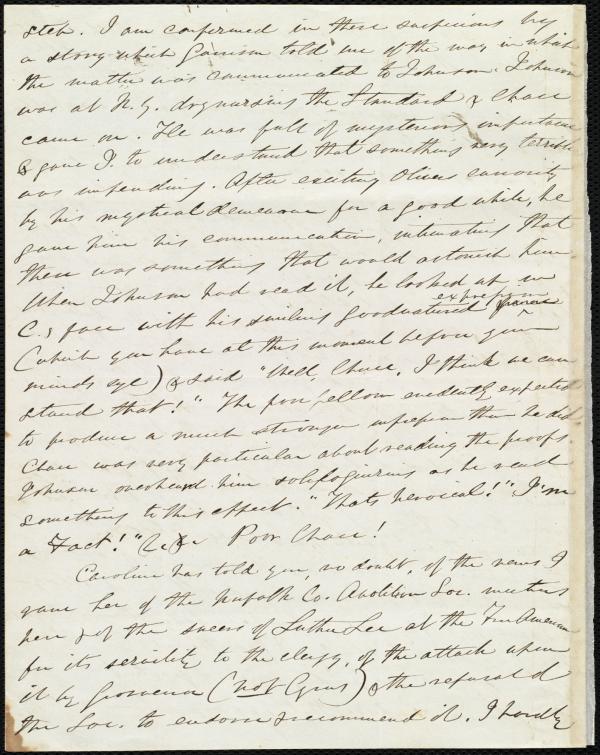 step. I am confirmed in these suspicions by
a story which Garrison told me of the way in which
the matter was communicated to Johnson. Johnson
was at N.Y. drynursing the Standard & Chace
came on. He was full of mysterious importance
& gave J. to understand that something very terrible
was impending. After exciting Olivers curiosity
by his mystical demeanor for a good while, he
gave him his communication, intimating that
there was something that would astonish him
When Johnson had read it, he looked up in
C.s face with his smiling goodnatured expression
(which you have at this moment before your
minds eye) & said "Well, Chace, I think we can
stand that!" The poor fellow evidently expected
to produce a much stronger impression than he did
Chace was very particular about reading the proofs.
Johnson overheard him soliloquizing as he read
something to this effect. "Thats heroical!" "I'm
a Fact!" &c &c Poor Chace!
Caroline has told you, no doubt, of the news I
gave her of the Norfolk Co. Abolition Soc. meeting
here & of the success of Luther Lee at the Free American
for its servility to the clergy, of the attack upon
it by Grosvenor (not Cyrus) & the refusal of
the Soc. to endorse & recommend it. I hardly